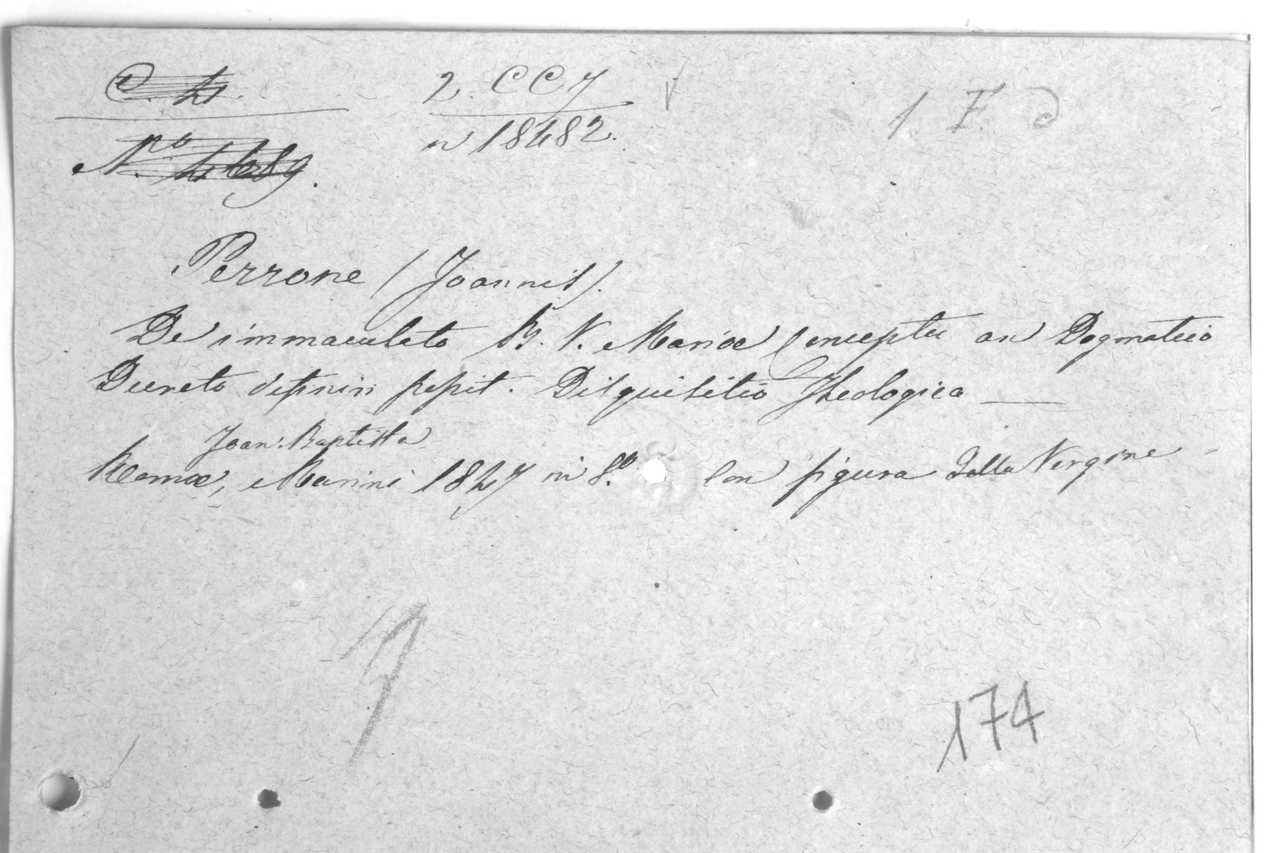 C. 4.
2. CC 7
1 7. D
Nº. 4489.
n 18482.
Perrone (Joannis).
De immaculato B. V. Mariæ Conceptu an Dogmatico
Decreto definiri possit. Disquisitio Theologica —
Joan: Baptista
Romæ, Marini 1847 in 8.º Con figura della Vergine -
7
174